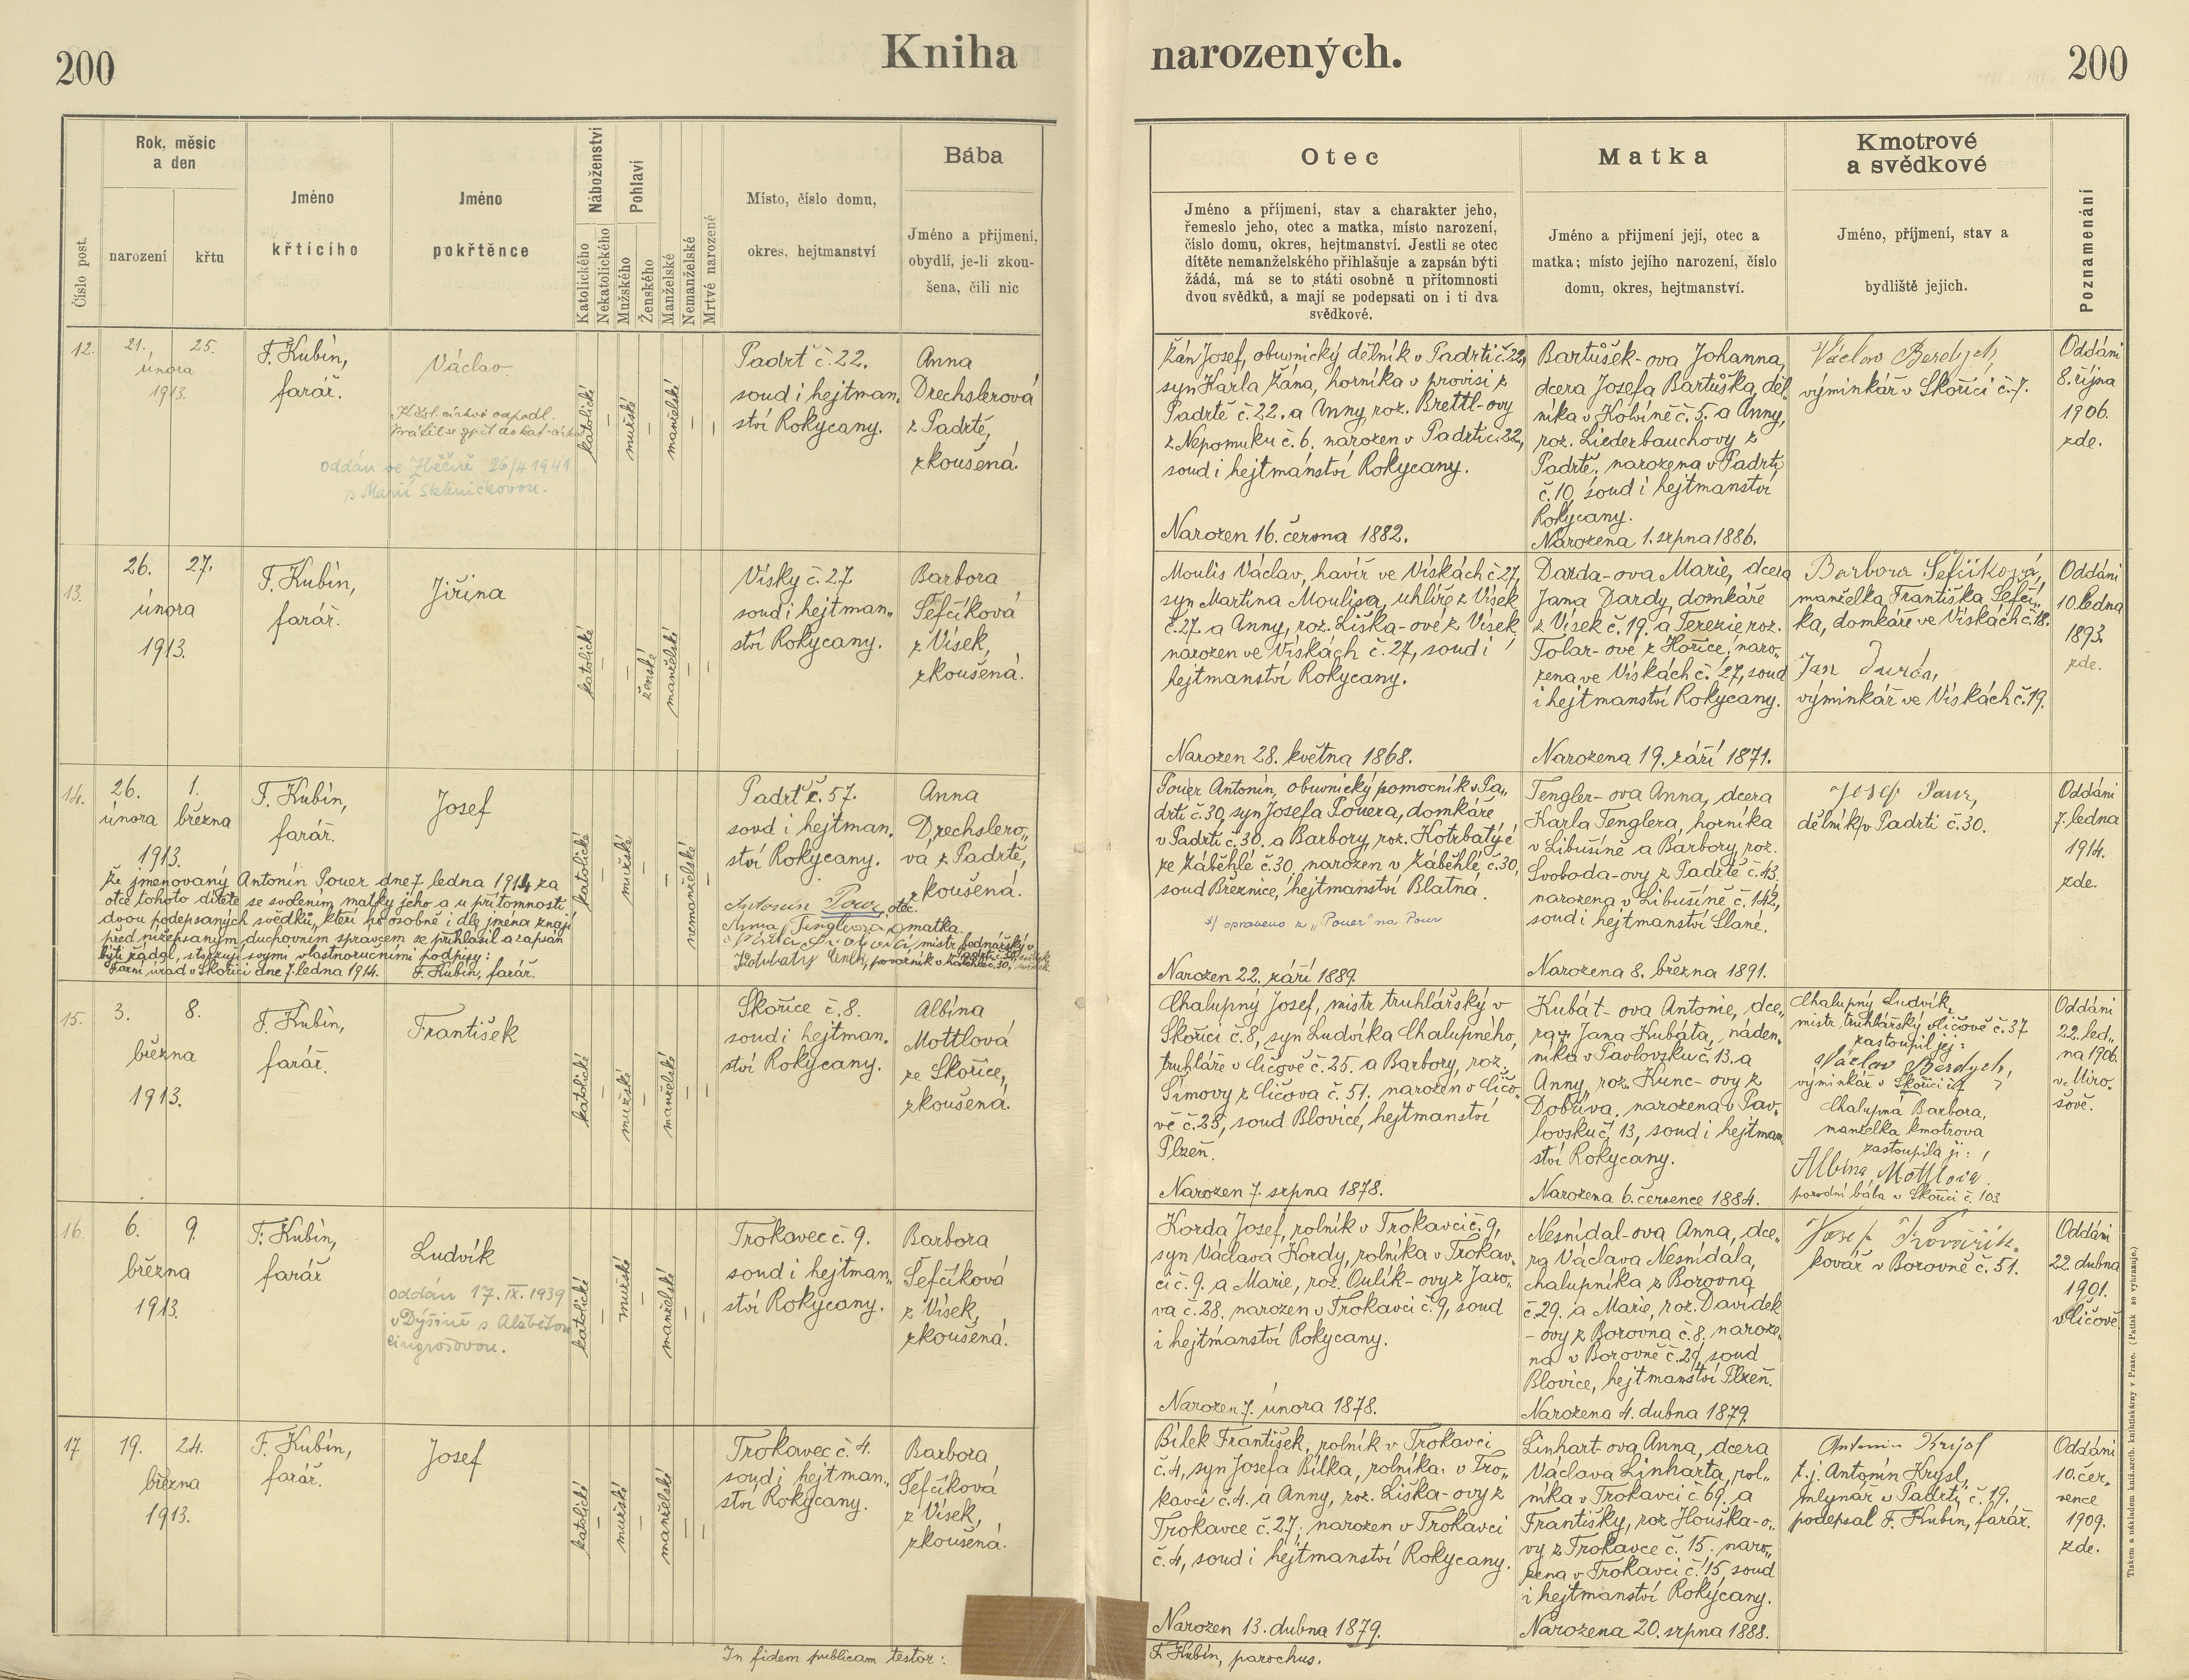 200
Kniha
narozených.
200
Číslo post.
Rok, měsíc
a den
narození
křtu
Jméno
křtícího
Jméno
pokřtěnce
Náboženství
Katolického
Nekatolického
Pohlaví
Mužského
Ženského
Manželské
Nemanželské
Mrtvé narozené
Místo, číslo domu,
okres, hejtmanství
Bába
Jméno a přijmení,
obydlí, je-li zkou-
šena, čili nic
Otec
Jméno a příjmení, stav a charakter jeho,
řemeslo jeho, otec a matka, místo narození,
číslo domu, okres, hejtmanství. Jestli se otec
dítěte nemanželského přihlašuje a zapsán býti
žádá, má se to státi osobně u přítomnosti
dvou svědků, a mají se podepsati on i ti dva
svědkové.
Matka
Jméno a přijmení její, otec a
matka; místo jejího narození, číslo
domu, okres, hejtmanství.
Kmotrové
a svědkové
Jméno, příjmení, stav a
bydliště jejich.
Poznamenání
12.
21. 25.
února
1913.
F. Kubín,
farář.
Václav
oddán ve Zbečně 26/4 1941
s Marií Skleničkovou.
katolické
—
mužské
—
manželské
—
—
Padrť č. 22.
soud i hejtman„
ství Rokycany.
Anna
Drechslerová
z Padrtě,
zkoušená.
Žán Josef, obuvnický dělník v Padrti č. 22,
syn Karla Žána, horníka v provisi z
Padrtě č. 22. a Anny, roz. Brettl-ovy
z Nepomuku č. 6. narozen v Padrti č. 22,
soud i hejtmanství Rokycany.
Narozen 16. června 1882.
Bartůšek-ova Johanna,
dcera Josefa Bartůška, děl„
níka v Kolvíně č. 5. a Anny,
roz. Liederbauchovy z
Padrtě, narozena v Padrti
č. 10, soud i hejtmanství
Rokycany.
Narozena 1. srpna 1886.
Václav
výminkář v Skořici č. 7.
Oddáni
8. října
1906.
zde.
13.
26. 27.
února
1913.
F. Kubín,
farář.
Jiřina
katolické
—
—
ženské
manželské
—
—
Vísky č. 27.
soud i hejtman„
ství Rokycany.
Barbora
Šefčíková
z Vísek,
zkoušená.
Moulis Václav, havíř ve Vískách č. 27,
syn Martina Moulisa, uhlíře z Vísek
č. 27. a Anny, roz. Liška-ové z Vísek,
narozen ve Vískách č. 27, soud i
hejtmanství Rokycany.
Narozen 28. května 1868.
Darda-ova Marie, dcera
Jana Dardy, domkáře
z Vísek č. 19. a Terezie roz.
Tolar-ové z Hořice, naro„
zena ve Vískách č. 27, soud
i hejtmanství Rokycany.
Narozena 19. září 1871.
Barbora Šefčíková,
manželka Františka Šefčí„
ka, domkáře ve Vískách č. 18.
Jan
výminkář ve Vískách č. 19.
Oddáni
10. ledna
1893.
zde.
14.
26. 1.
února března
1913.
F. Kubín,
farář.
Josef
katolické
—
mužské
—
—
nemanželské
—
Padrť č. 57.
soud i hejtman„
ství Rokycany.
Anna
Drechslero„
va z Padrtě,
zkoušená.
Že jmenovaný Antonín Pouer dne 7. ledna 1914 za
otce tohoto dítěte se svolením matky jeho a u přítomnosti
dvou podepsaných svědků, kteří ho osobně i dle jména znají
před nížepsaným duchovním správcem se přihlásil a zapsán
býti žádal, stvrzují svými vlastnoručními podpisy:
Farní úřad v Skořici dne 7. ledna 1914. F. Kubín, farář.
Antonín Pour, otec.
Anna Tenglerova, matka.
mistr bednářský v
Pouer Antonín, obuvnický pomocník v Pa„
drti č. 30, syn Josefa Pouera, domkáře
v Padrti č. 30. a Barbory, roz. Kotrbatý-é
ze Záběhlé č. 30, narozen v Záběhlé, č. 30,
soud Březnice, hejtmanství Blatná.
x/ opraveno z „Pouer" na Pour
Narozen 22. září 1889.
Tengler-ova Anna, dcera
Karla Tenglera, horníka
v Libušíně a Barbory, roz.
Svoboda-ovy z Padrtě č. 43.
narozena v Libušíně č. 142,
soud i hejtmanství Slané.
Narozena 8. března 1891.
Josef Pour,
dělník v Padrti č. 30.
Oddáni
7. ledna
1914.
zde.
15.
3. 8.
března
1913.
F. Kubín,
farář.
František
katolické
—
mužské
—
manželské
—
—
Skořice č. 8.
soud i hejtman„
ství Rokycany.
Albína
Mottlová
ze Skořice,
zkoušená.
Chalupný Josef, mistr truhlářský v
Skořici č. 8, syn Ludvíka Chalupného,
truhláře v Čičově č. 25. a Barbory, roz.
Šimovy z Čičova č. 51. narozen v Čičo„
vě č. 25, soud Blovice, hejtmanství
Plzeň.
Narozen 7. srpna 1878.
Kubát-ova Antonie, dce„
ra Jana Kubáta, náden„
níka v Pavlovsku č. 13. a
Anny, roz. Kunc-ovy z
Dobříva, narozena v Pav„
lovsku č. 13, soud i hejtman„
ství Rokycany.
Narozena 6. července 1884.
Chalupný Ludvík,
mistr truhlářský v Čičově č. 37
zastoupil jej:
Václav Berdych,
výminkář v Skořici č. 7
Chalupná Barbora,
manželka kmotrova
zastoupila ji:
Albína Mottlová.
porodní bába v Skořici č. 103
Oddáni
22. led„
na 1906.
v Miro„
šově.
16.
6. 9.
března
1913.
F. Kubín,
farář
Ludvík
oddán 17. IX. 1939
v Dýšině s Alžbětou
Cingrošovou.
katolické
—
mužské
—
manželské
—
—
Trokavec č. 9.
soud i hejtman„
ství Rokycany.
Barbora
Šefčíková
z Vísek,
zkoušená.
Korda Josef, rolník v Trokavci č. 9,
syn Václava Kordy, rolníka v Trokav„
ci č. 9. a Marie, roz. Oulík-ovy z Jaro„
va č. 28. narozen v Trokavci č. 9, soud
i hejtmanství Rokycany.
Narozen 7. února 1878.
Nesnídal-ova Anna, dce„
ra Václava Nesnídala,
chalupníka z Borovna
č. 29. a Marie, roz. Davídek
-ovy z Borovna č. 8. naroze„
na v Borovně č. 29, soud
Blovice, hejtmanství Plzeň.
Narozena 4. dubna 1879.
Josef Kovářík,
kovář v Borovně č. 51.
Oddáni
22. dubna
1901.
v Čičově.
17.
19. 24.
března
1913.
F. Kubín,
farář.
Josef
katolické
—
mužské
—
manželské
—
—
Trokavec č. 4.
soud i hejtman„
ství Rokycany.
Barbora
Šefčíková
z Vísek,
zkoušená.
Bílek František, rolník v Trokavci
č. 4, syn Josefa Bílka, rolníka v Tro„
kavci č. 4. a Anny, roz. Liška-ovy z
Trokavce č. 27; narozen v Trokavci
č. 4, soud i hejtmanství Rokycany.
Narozen 13. dubna 1879.
Linhart-ova Anna, dcera
Václava Linharta, rol„
níka v Trokavci č. 69. a
Františky, roz. Houška-o„
vy z Trokavce č. 15. naro„
zena v Trokavci č. 15, soud
i hejtmanství Rokycany.
Narozena 20. srpna 1888.
Antonín
t. j. Antonín Krysl,
mlynář v Padrti č. 19.
podepsal F. Kubín, farář.
Oddáni
10. čer„
vence
1909.
zde.
In fidem publicam testor:
F. Kubín, parochus.
Tiskem a nákladem kníž. arcib. knihtiskárny v Praze. (Patisk se vyhrazuje.)